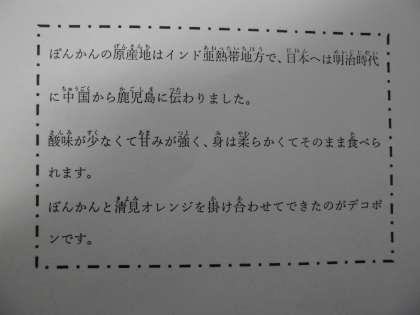 ぽんかんの原産地はインド亜熱帯地方で、日本へは明治時代
に中国から鹿児島に伝わりました。
酸味が少なくて甘みが強く、身は柔らかくてそのまま食べら
れます。
ぽんかんと清見オレンジを掛け合わせてできたのがデコポ
ンです。